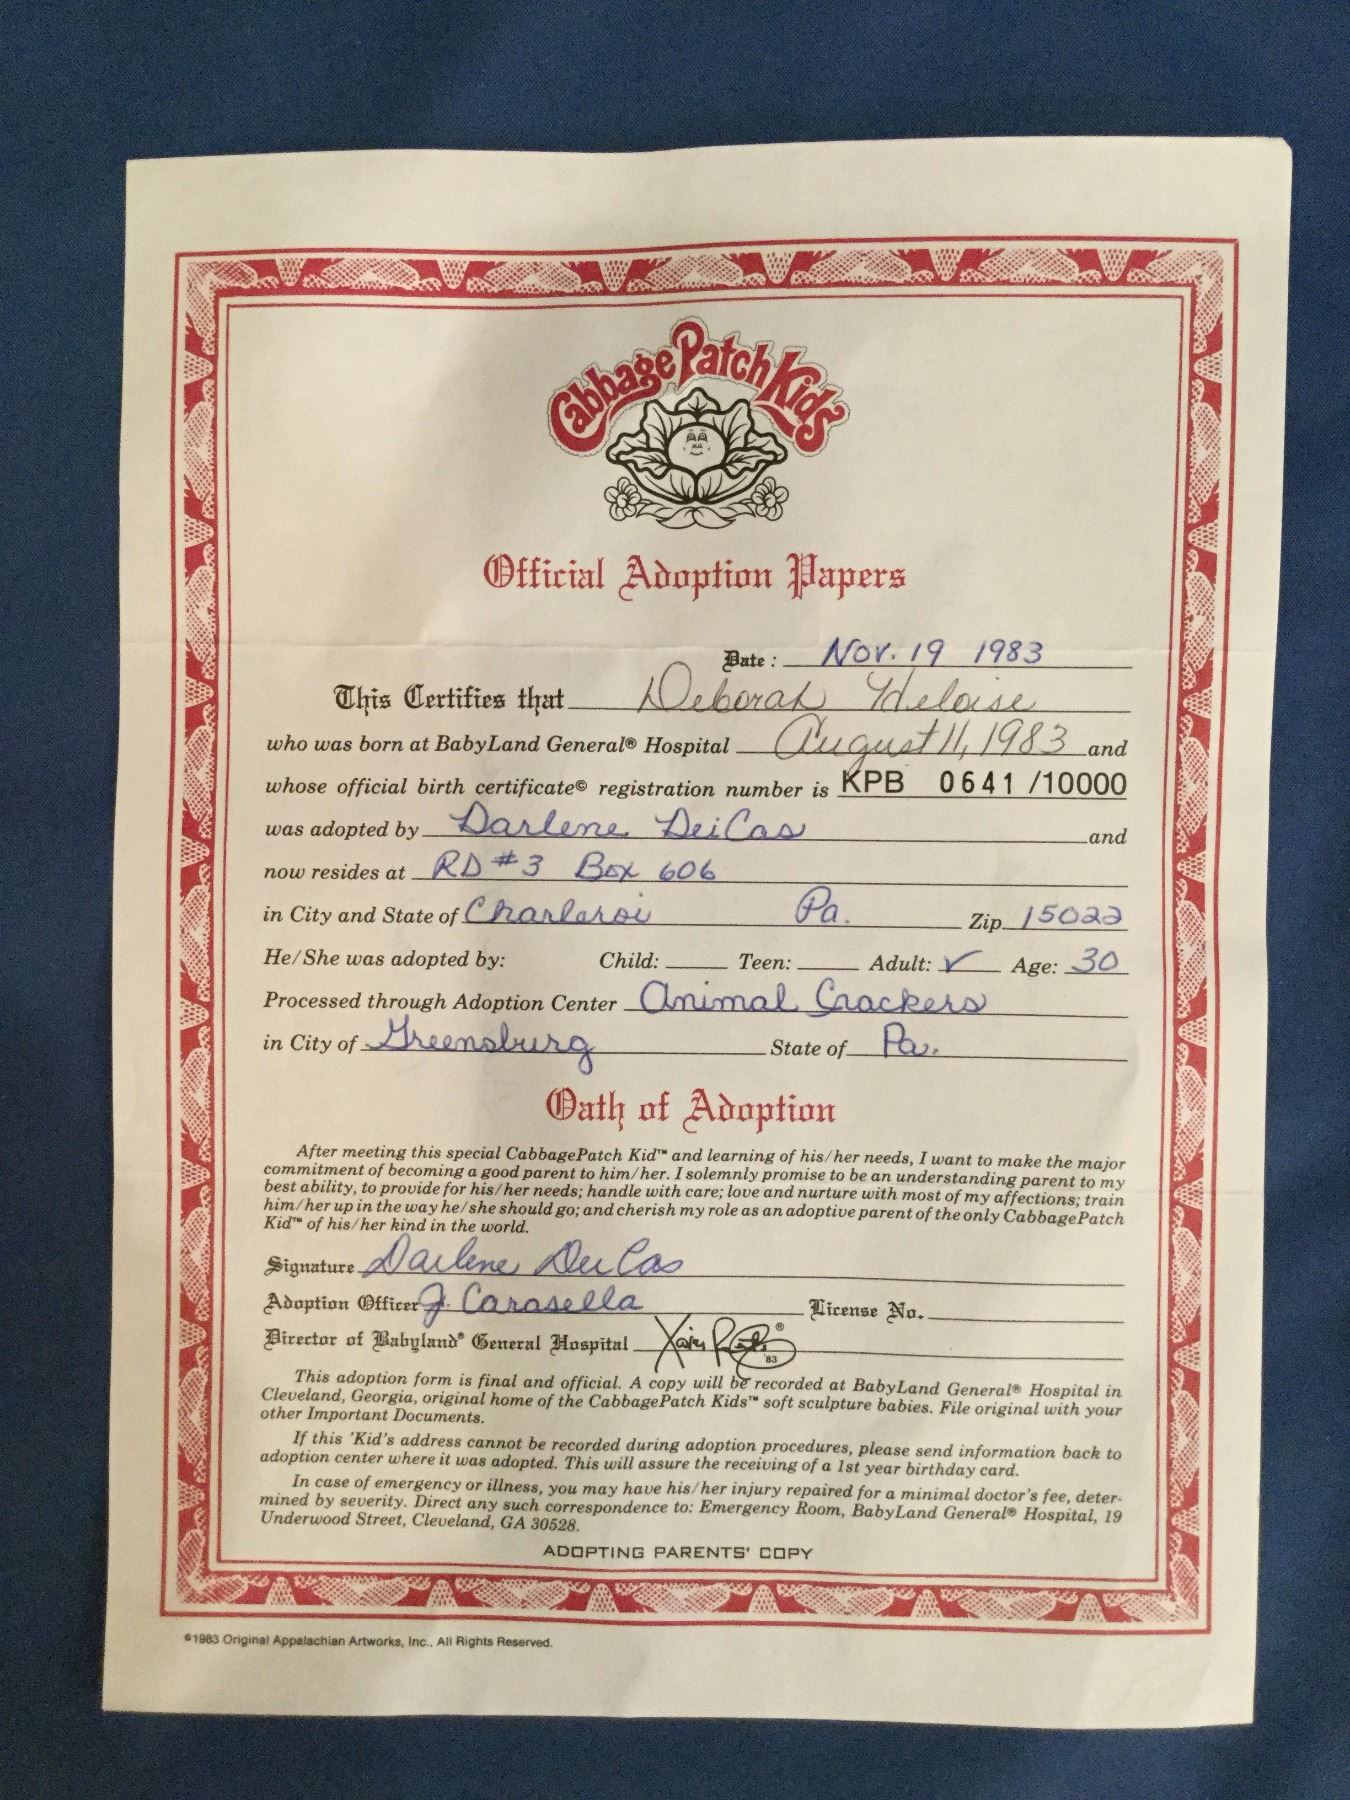 Cabbage Patch Kids
Official Adoption Papers
Date: Nov. 19 1983
This Certifies that Deborah Heloise
who was born at BabyLand General® Hospital August 11, 1983 and
whose official birth certificate© registration number is KPB 0641 /10000
was adopted by Darlene DeiCas and
now resides at RD #3 Box 606
in City and State of Charleroi Pa. Zip 15022
He/She was adopted by: Child: Teen: Adult: ✓ Age: 30
Processed through Adoption Center Animal Crackers
in City of Greensburg State of Pa.
Oath of Adoption
After meeting this special CabbagePatch Kid™ and learning of his/her needs, I want to make the major
commitment of becoming a good parent to him/her. I solemnly promise to be an understanding parent to my
best ability, to provide for his/her needs; handle with care; love and nurture with most of my affections; train
him/her up in the way he/she should go; and cherish my role as an adoptive parent of the only CabbagePatch
Kid™ of his/her kind in the world.
Signature Darlene DeiCas
Adoption Officer J. Carasella License No.
Director of Babyland® General Hospital Xavier Roberts ® '83
This adoption form is final and official. A copy will be recorded at BabyLand General® Hospital in
Cleveland, Georgia, original home of the CabbagePatch Kids™ soft sculpture babies. File original with your
other Important Documents.
If this 'Kid's address cannot be recorded during adoption procedures, please send information back to
adoption center where it was adopted. This will assure the receiving of a 1st year birthday card.
In case of emergency or illness, you may have his/her injury repaired for a minimal doctor's fee, deter-
mined by severity. Direct any such correspondence to: Emergency Room, BabyLand General® Hospital, 19
Underwood Street, Cleveland, GA 30528.
ADOPTING PARENTS' COPY
©1983 Original Appalachian Artworks, Inc., All Rights Reserved.